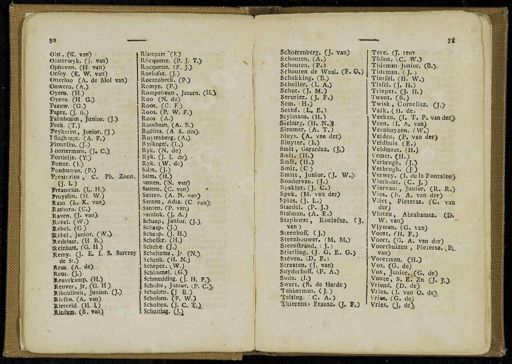 50
Olst, (K. van)
Oosterwyk. (J. van)
Ophoven. (H. van)
Orsoy (E. W. van)
Otterloo (A. de Mol van)
Ouwens. (A.)
Oyens. (H)
Oyens. (H G.)
Paauw. (G.)
Pages. (J. B.)
Palmboom, Junior. (J.)
Peek. (T.)
Peykeren, Junior. (J.)
(A. F.)
Pietersen. (J.)
(J. C.)
Portielje. (Y.)
Poster. (J.)
Posthumus. (P.)
C. Ph. Zoon.
(J. L.)
Pretorius. (L. H.)
Pruyssen. (H. W.)
Raan (L. K. van)
(C.)
Raven. (J. van)
Rebel. (W.)
Rebel. (G.)
Rebel, Junior. (W.)
Redelaar. (H B.)
(H. G.)
Remy. (J. E. L S. Surrey
de S.)
Reus. (A. de)
Reus. (J.)
Reuvekamp. (H.)
Reuver, Jr. (G. H)
Riboulleau, Junior. (J.)
Riesen. (A. van)
Rietveld. (H L.)
Rinsum. (B. van)
Ristepatr (F.)
Rocquette. (P. J. T.)
Rocquette. (F. J.)
Roelofsz. (J.)
Roetenbeek. (P.)
Romyn. (P.)
Rompelman, Jansen. (H.)
Roo (N. de)
Roos. (C. F.)
Roos. (P. W. F.)
Roos (A.)
Roothaan. (A. B.)
Ruëlles. (A S. des)
Ruytenberg. (A.)
(L.)
Ryk. (N. de)
Ryk. (J. L. de)
Ryk. (W. de)
Salm. (J.)
Salm. (H.)
Santen. (N. van)
Santen. (C. van)
Santen. (A. W. van)
Santen, Adsz (C van)
Santen. (P. van)
(J. A.)
Schaap, Junior. (J.)
Schaap. (J.)
Schaap. (J. H.)
Scheffer. (H.)
Schele. (J.)
Scheltema, Jr. (N.)
Schenk. (H. N.)
Scheper. (W.)
Schimmel. (G.)
Schmedding. (J. H. F.)
Scholte, Junior. (P. C.)
Scholten. (J B.)
Scholten. (P. W.)
Scholten. (J. C. T.)
Scholting. (J.)
51
Schorrenberg. (J. van)
Schouten. (A.)
Schouten. (P.)
Schouten de Waal. (F. G.)
Schukking. (B.)
Schuller. (I. A.)
Schut. (J. M.)
Serurier. (J. F.)
Sem. (H.)
Sethé. (L. E.)
Seyimans. (H.)
Sieburg. (H. N.)
Sleumer. (A. T.)
Sluys. (A. van der)
Sluyter. (L.)
Smit, Gerardsz. (J.)
Smit. (H.)
Smit. (H.)
Smit. (C.)
Smits, Junior. (J. W.)
Sondervan. (J.)
Spakler. (J. C.)
Spek. (M. van der)
Spies. (J. L.)
Staedel. (P. J.)
Statman. (A. E.)
Staphorst, Roelofsz. (J.
van)
Steenhoff. (J.)
Steenbouwer. (M. M.)
(J.)
Stierling. (J. G. E. G.)
Stéven. (D. F.)
Straaten. (J. van)
Suyderhoff. (P. A.)
Suste. (I.)
Swart. (R. de Harde)
Tebberman. (J.)
Telting. (C. A.)
Thierens, Fransz. (J. F.)
Teve. (J. ten)
Thöne. (C. W.)
Tideman, Junior. (B.)
Tideman. (J.)
Tierssel. (B. W.)
Tissel. (J. H.)
Trieper. (J. H.)
Twent. (B.)
Twisk, Cornelisz. (J.)
Valk. (H. de
Veeken. (I. T. F. van der)
Veen. (I. A. van)
Veenhuyzen. (W.)
Velden. (P. van der)
Veldhuis. (E.)
Veldman. (H.)
Vener. (H.)
Verbeegh. (J.)
Verbrugh. (J.)
Verwey. (C. de la Fontaine)
Vierhouts. (C. J.)
Viervant, Junior. (R. R.)
Vlies. (A. van der)
Vliet, Pietersz. (C. van
der)
Vloten, Abrahamsz. (D.
W. van)
Vlymen. (G. van)
Voorst. (H. F.)
Voort. (G. A. van der)
Voorthuizen, Pietersz. (B.
van)
Voorman. (H.)
Vos. (G. de)
Vos, Junior. (G. de)
Voute, S. E. Zn (J. J.)
Vriend. (D. de)
Vries. (J. van O. de)
Vries. (G. de)
Vries. (J. de)